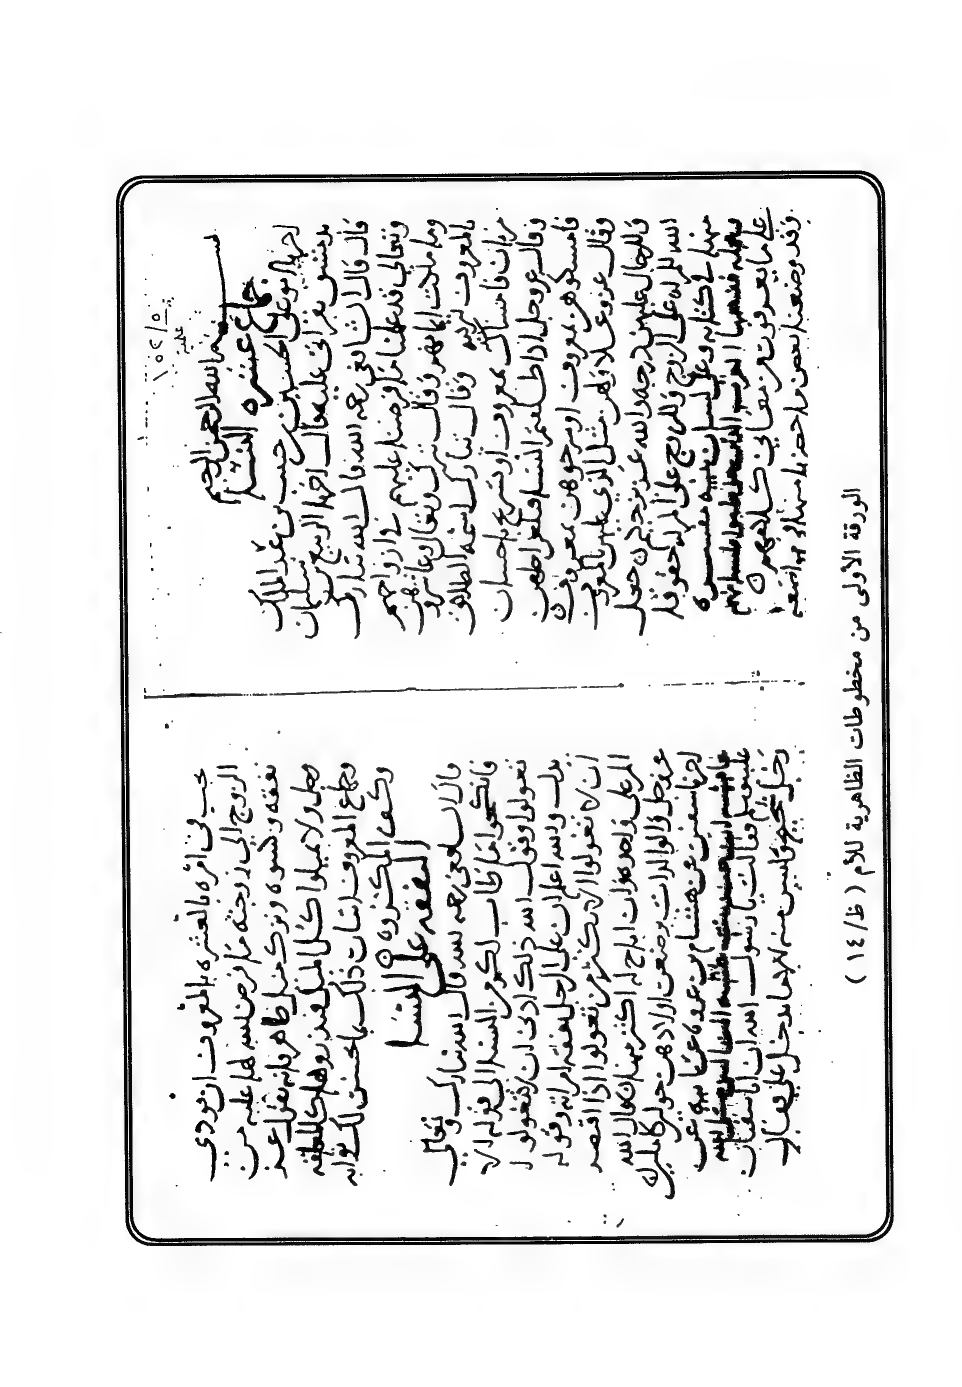 ١٥٢/٥
بسم الله الرحمن الرحيم
جماع عشرة النسا
اخبرنا ابو علي الحسين بن حبيب بن عبد الملك
بدمشق بقراتي عليه قال اخبرنا الربيع بن سليمان
قال قال الشافعي رحمه الله قال الله تبارك
وتعالى قد علمنا ما فرضنا عليهم في ازواجهم
وما ملكت ايمانهم وقال تبارك وتعالى وعاشروهن
بالمعروف وقال تبارك اسمه الطلاق
مرتان فامساك بمعروف او تسريح باحسان
وقال عز وجل اذا طلقتم النسا فبلغن اجلهن
فامسكوهن بمعروف او سرحوهن بمعروف
وقال عز وعلا ولهن مثل الذي عليهن بالمعروف
وللرجال عليهن درجة والله عزيز حكيم جعل
الله للمراة على الزوج وللزوج على المراة حقوقا
بينها في كتابه وعلى لسان نبيه مفسرة
ومجملة ففهمها العرب الذين خوطبوا بلسانهم
على ما يعرفون من معاني كلامهم
وقد وضعنا بعض ما حضرنا منها في مواضعه
يجب في امره بالعشرة بالمعروف ان يودي
الزوج الى زوجته ما فرض الله لها عليه من
نفقة وكسوة وترك ميل ظاهر فانه يقول عز
وجل ولا تميلوا كل الميل فتذروها كالمعلقة
وجماع المعروف اتيان ذلك بما يحسن لك ثوابه
وكف المكروه
النفقة على النسا
قال الشافعي رحمه الله قال الله تبارك وتعالى
فانكحوا ما طاب لكم من النسا الى قوله الا
تعولوا وقول الله ذلك ادنى ان لا تعولوا
يدل والله اعلم ان على الرجل نفقة امراته وقوله
ان لا تعولوا اي لا يكثر من تعولوا اذا اقتصر
المرء على واحدة وان اباح له اكثر منها قال الله
عز وجل والوالدات يرضعن اولادهن حولين كاملين
اخبرنا سفين عن هشام بن عروة عن ابيه عن
عليه وسلم فقالت يا رسول الله ان ابا سفيان
رجل شحيح وليس لي منه الا ما يدخل علي فقال
الورقة الأولى من مخطوطات الظاهرية للأم ( ظ/١٤ )